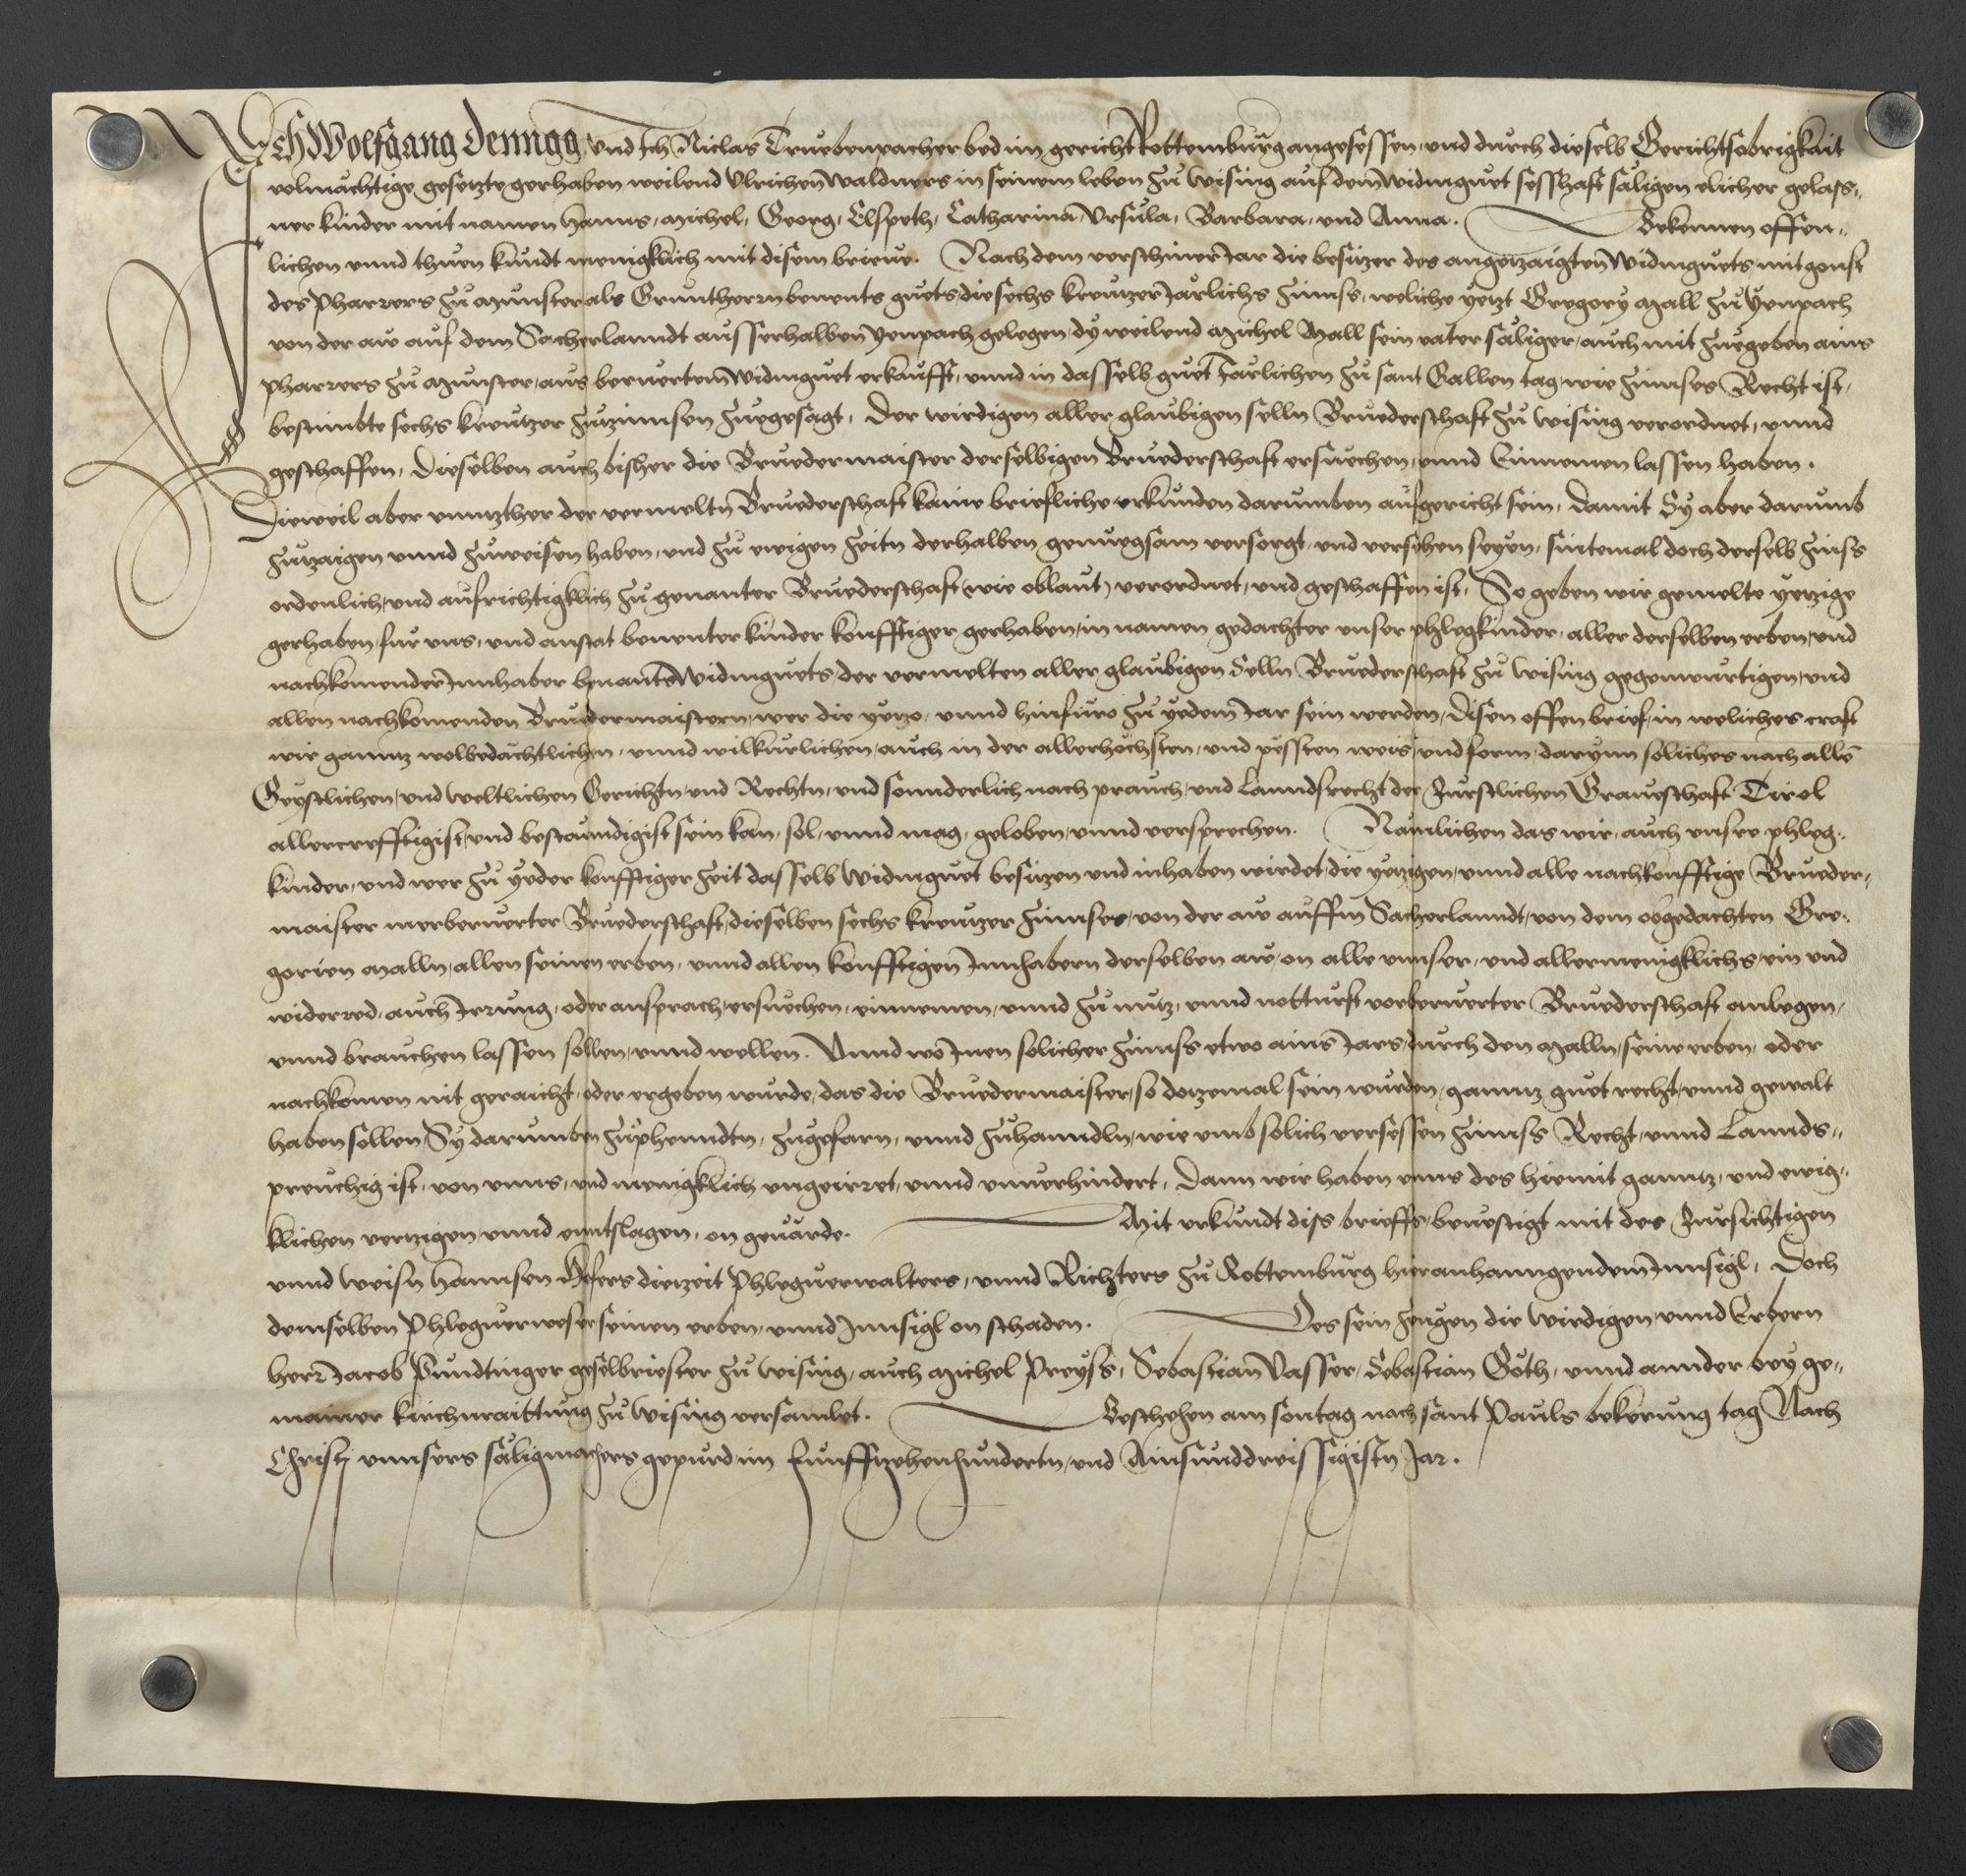 Ich Wolfgang Denngg, und Ich Niclas Truebenpacher bed im gericht Rottemburg angesessen, und durch dieselb Gerichtsobrigkait
volmächtige gesetzte gerhaben weilend Ulrichen Waldners in seinem leben zu Wising auf dem Widmguet sesshaft säligen elicher gelass„
ner kinder mit namen Hanns, Michel, Georg, Elspeth, Catharina, Ursula, Barbara, und Anna. Bekennen offen„
lichen unnd thuen kundt menigklich mit disem brieve. Nachdem verschiner Jar die besitzer des angetzaigten Widmguets mit gonst
des Pharrers zu Munster als Gruntherrn benents guets die sechs kreutzer Järlichs Zinnss, weliche yetzt Gregory Mall zu Yenpach
von der aw auf dem Sacherlanndt ausserhalben Yenpach gelegen, dy weilend Michel Mall sein vater säliger, auch mit zuegeben ains
Pharrers zu Munster, aus beruertem Widmguet erkaufft, unnd in dasselb guet Järlichen zu sant Gallen tag, wie Zinnses Recht ist,
bestimbte sechs kreutzer zutzinnsen zuegesagt, Der wirdigen aller glaubigen selln Bruederschaft zu Wising verordnet, unnd
geschaffen, Dieselben auch bisher die Bruedermaister derselbigen Bruederschaft ersuechen, unnd Einnemen lassen haben.
Dieweil aber unntzther der vermeltn Bruederschaft kaine briefliche urkunden darumben aufgericht sein, Damit Sy aber darumb
zutzaigen unnd zuweisen haben, und zu ewigen Zeitn derhalben genuegsam versorgt, und versehen seyen, sintemal doch derselb Zinss
ordenlich, und aufrichtigklich zu genanter Bruederschaft (wie oblaut) verordnet, und geschaffen ist, So geben wir gemelte yetzige
gerhaben, fur uns, und anstat benenter kinder konfftiger gerhaben, in namen gedachter unser phlegkinder, aller derselben erben, und
nachkomender Innhaber benants Widmguets, der vermelten aller glaubigen Selln Bruederschaft zu Wising gegenwurtigen, und
allen nachkomenden Bruedermaistern, wer die yetzo, unnd hinfuro zu yedem Jar sein werden, Disen offen brief, in weliches craft
wir ganntz wolbedächtlichen, unnd wilkurlichen, auch in der allerhöchsten, und pessten weis, und form, darynn soliches nach allen
Geystlichen, und weltlichen Gerichtn, und Rechtn, und sonnderlich nach prauch, und Lanndsrecht der Furstlichen Graveschaft Tirol
allercrefftigist, und bestänndigist sein kan, sol, unnd mag, geloben, unnd versprechen. Nämlichen das wir, auch unsre phleg„
kinder, und wer zu yeder konfftiger Zeit dasselb Widmguet besitzen und inhaben wirdet, die yetzigen, unnd alle nachkonfftige Brueder„
maister merberuerter Bruederschaft, dieselben sechs kreutzer Zinnses, von der aw auffm Sacherlanndt, von dem obgedachten Gre„
gorien Malln, allen seinen erben, unnd allen konfftigen Innhabern derselben aw, on alle unnser, und allermenigklichs, ein und
widerred, auch Irrung, oder ansprach, ersuechen, einnemen, unnd zu nutz, unnd notturft vorberuerter Bruederschaft anlegen,
unnd brauchen lassen sollen, unnd wellen. Unnd wo Inen solicher Zinnss etwo ains Jars, durch den Malln, seine erben, oder
nachkomen nit geraicht, oder ergeben wurde, das die Bruedermaister, so dotzemal sein wurden, ganntz guet recht, unnd gewalt
haben sollen Sy darumben zuphenndtn, zugefarn, unnd zuhanndln, wie umb solich versessen Zinnss Recht, unnd Lannds„
preuchig ist, von unns, und menigklich ungeirret, unnd unverhindert, Dann wir haben unns des hiemit ganntz, und ewig„
klichen vertzigen, unnd enntslagen, on gevärde. Mit urkundt diss brieffs, bevestigt mit des Fursichtigen
unnd Weisn Hannsen Hofers dietzeit Phlegverwalters, unnd Richters zu Rottemburg hieranhanngendem Innsigl, Doch
demselben Phlegverweser seinen erben, unnd Innsigl on schaden. Des sein zeugen die Wirdigen unnd Erbern
herr Jacob Pundtinger gesellbriester zu Wising, auch Michel Preyss, Sebastian Vasser, Sebastian Göth, unnd annder bey ge„
mainer kirchnraittung zu Wising versamlet. Beschehen am sontag nach sant Pauls bekerung tag Nach
Christj unnsers säligmachers gepurd im Funfftzehenhundertn, und Ainsunddreissigistn Jar.